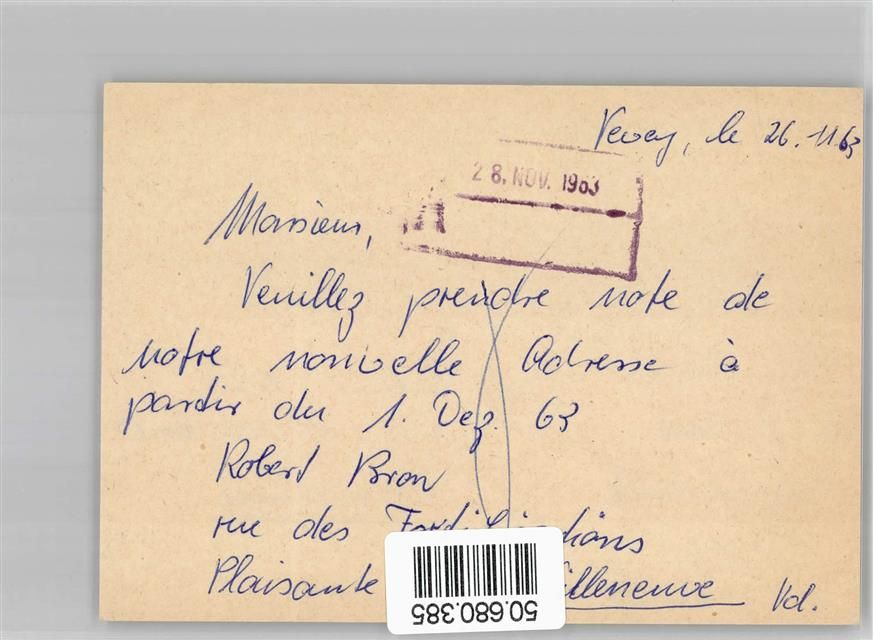 Vevey, le 26.11.63
28. NOV. 1963
Monsieur,
Veuillez prendre note de
notre nouvelle Adresse à
partir du 1. Dez. 63
Robert Bron
rue des
Plaisante Villeneuve Vd.
50.680.385